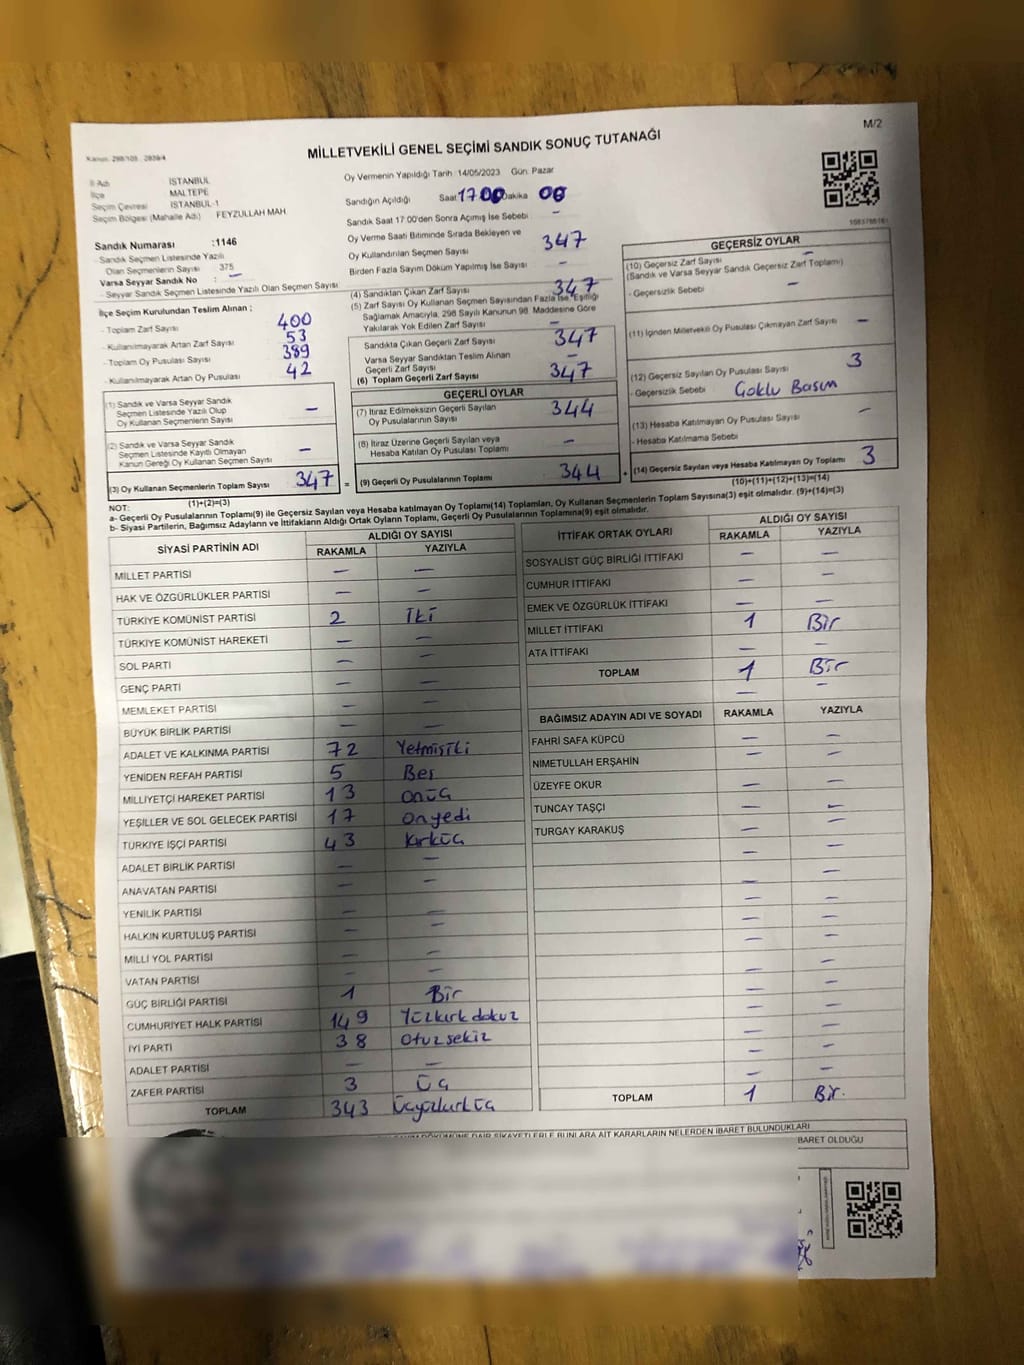 M/2
Kanun: 298/105 , 2839/4
MİLLETVEKİLİ GENEL SEÇİMİ SANDIK SONUÇ TUTANAĞI
İl Adı İSTANBUL
İlçe MALTEPE
Seçim Çevresi İSTANBUL-1
Seçim Bölgesi (Mahalle Adı) FEYZULLAH MAH
Sandık Numarası :1146
- Sandık Seçmen Listesinde Yazılı
Olan Seçmenlerin Sayısı 375
Varsa Seyyar Sandık No : –
- Seyyar Sandık Seçmen Listesinde Yazılı Olan Seçmen Sayısı
İlçe Seçim Kurulundan Teslim Alınan ;
- Toplam Zarf Sayısı 400
- Kullanılmayarak Artan Zarf Sayısı 53
- Toplam Oy Pusulası Sayısı 389
- Kullanılmayarak Artan Oy Pusulası 42
(1) Sandık ve Varsa Seyyar Sandık
Seçmen Listesinde Yazılı Olup
Oy Kullanan Seçmenlerin Sayısı –
(2) Sandık ve Varsa Seyyar Sandık
Seçmen Listesinde Kayıtlı Olmayan
Kanun Gereği Oy Kullanan Seçmen Sayısı –
(3) Oy Kullanan Seçmenlerin Toplam Sayısı 347 =
(1)+(2)=(3)
Oy Vermenin Yapıldığı Tarih :14/05/2023 Gün: Pazar
Sandığın Açıldığı Saat 17 00 Dakika 00
Sandık Saat 17:00'den Sonra Açımış İse Sebebi –
Oy Verme Saati Bitiminde Sırada Bekleyen ve
Oy Kullandırılan Seçmen Sayısı 347
Birden Fazla Sayım Döküm Yapılmış İse Sayısı –
(4) Sandıktan Çıkan Zarf Sayısı 347
(5) Zarf Sayısı Oy Kullanan Seçmen Sayısından Fazla İse, Eşitliği
Sağlamak Amacıyla, 298 Sayılı Kanunun 98. Maddesine Göre
Yakılarak Yok Edilen Zarf Sayısı –
Sandıkta Çıkan Geçerli Zarf Sayısı 347
Varsa Seyyar Sandıktan Teslim Alınan
Geçerli Zarf Sayısı –
(6) Toplam Geçerli Zarf Sayısı 347
GEÇERLİ OYLAR
(7) İtiraz Edilmeksizin Geçerli Sayılan
Oy Pusulalarının Sayısı 344
(8) İtiraz Üzerine Geçerli Sayılan veya
Hesaba Katılan Oy Pusulası Toplamı –
(9) Geçerli Oy Pusulalarının Toplamı 344 +
GEÇERSİZ OYLAR
(10) Geçersiz Zarf Sayısı –
(Sandık ve Varsa Seyyar Sandık Geçersiz Zarf Toplamı)
- Geçersizlik Sebebi –
(11) İçinden Milletvekili Oy Pusulası Çıkmayan Zarf Sayısı –
(12) Geçersiz Sayılan Oy Pusulası Sayısı 3
- Geçersizlik Sebebi Çoklu Basım
(13) Hesaba Katılmayan Oy Pusulası Sayısı –
- Hesaba Katılmama Sebebi
(14) Geçersiz Sayılan veya Hesaba Katılmayan Oy Toplamı 3
(10)+(11)+(12)+(13)=(14)
NOT:
a- Geçerli Oy Pusulalarının Toplamı(9) ile Geçersiz Sayılan veya Hesaba katılmayan Oy Toplamı(14) Toplamları, Oy Kullanan Seçmenlerin Toplam Sayısına(3) eşit olmalıdır. (9)+(14)=(3)
b- Siyasi Partilerin, Bağımsız Adayların ve İttifakların Aldığı Ortak Oyların Toplamı, Geçerli Oy Pusulalarının Toplamına(9) eşit olmalıdır.
SİYASİ PARTİNİN ADI ALDIĞI OY SAYISI
RAKAMLA YAZIYLA
MİLLET PARTİSİ – –
HAK VE ÖZGÜRLÜKLER PARTİSİ – –
TÜRKİYE KOMÜNİST PARTİSİ 2 İki
TÜRKİYE KOMÜNİST HAREKETİ – –
SOL PARTİ – –
GENÇ PARTİ – –
MEMLEKET PARTİSİ – –
BÜYÜK BİRLİK PARTİSİ – –
ADALET VE KALKINMA PARTİSİ 72 Yetmişiki
YENİDEN REFAH PARTİSİ 5 Beş
MİLLİYETÇİ HAREKET PARTİSİ 13 Onüç
YEŞİLLER VE SOL GELECEK PARTİSİ 17 Onyedi
TÜRKİYE İŞÇİ PARTİSİ 43 Kırküç
ADALET BİRLİK PARTİSİ – –
ANAVATAN PARTİSİ – –
YENİLİK PARTİSİ – –
HALKIN KURTULUŞ PARTİSİ – –
MİLLİ YOL PARTİSİ – –
VATAN PARTİSİ – –
GÜÇ BİRLİĞİ PARTİSİ 1 Bir
CUMHURİYET HALK PARTİSİ 149 Yüzkırkdokuz
İYİ PARTİ 38 Otuzsekiz
ADALET PARTİSİ – –
ZAFER PARTİSİ 3 Üç
TOPLAM 343 Üçyüzkırküç
İTTİFAK ORTAK OYLARI ALDIĞI OY SAYISI
RAKAMLA YAZIYLA
SOSYALİST GÜÇ BİRLİĞİ İTTİFAKI – –
CUMHUR İTTİFAKI – –
EMEK VE ÖZGÜRLÜK İTTİFAKI – –
MİLLET İTTİFAKI 1 Bir
ATA İTTİFAKI – –
TOPLAM 1 Bir
– –
BAĞIMSIZ ADAYIN ADI VE SOYADI RAKAMLA YAZIYLA
FAHRİ SAFA KÜPCÜ – –
NİMETULLAH ERŞAHİN – –
ÜZEYFE OKUR – –
TUNCAY TAŞÇI – –
TURGAY KARAKUŞ – –
TOPLAM 1 Bir.
DÖKÜMÜNE DAİR ŞİKAYETLERLE BUNLARA AİT KARARLARIN NELERDEN İBARET BULUNDUKLARI
BARET OLDUĞU